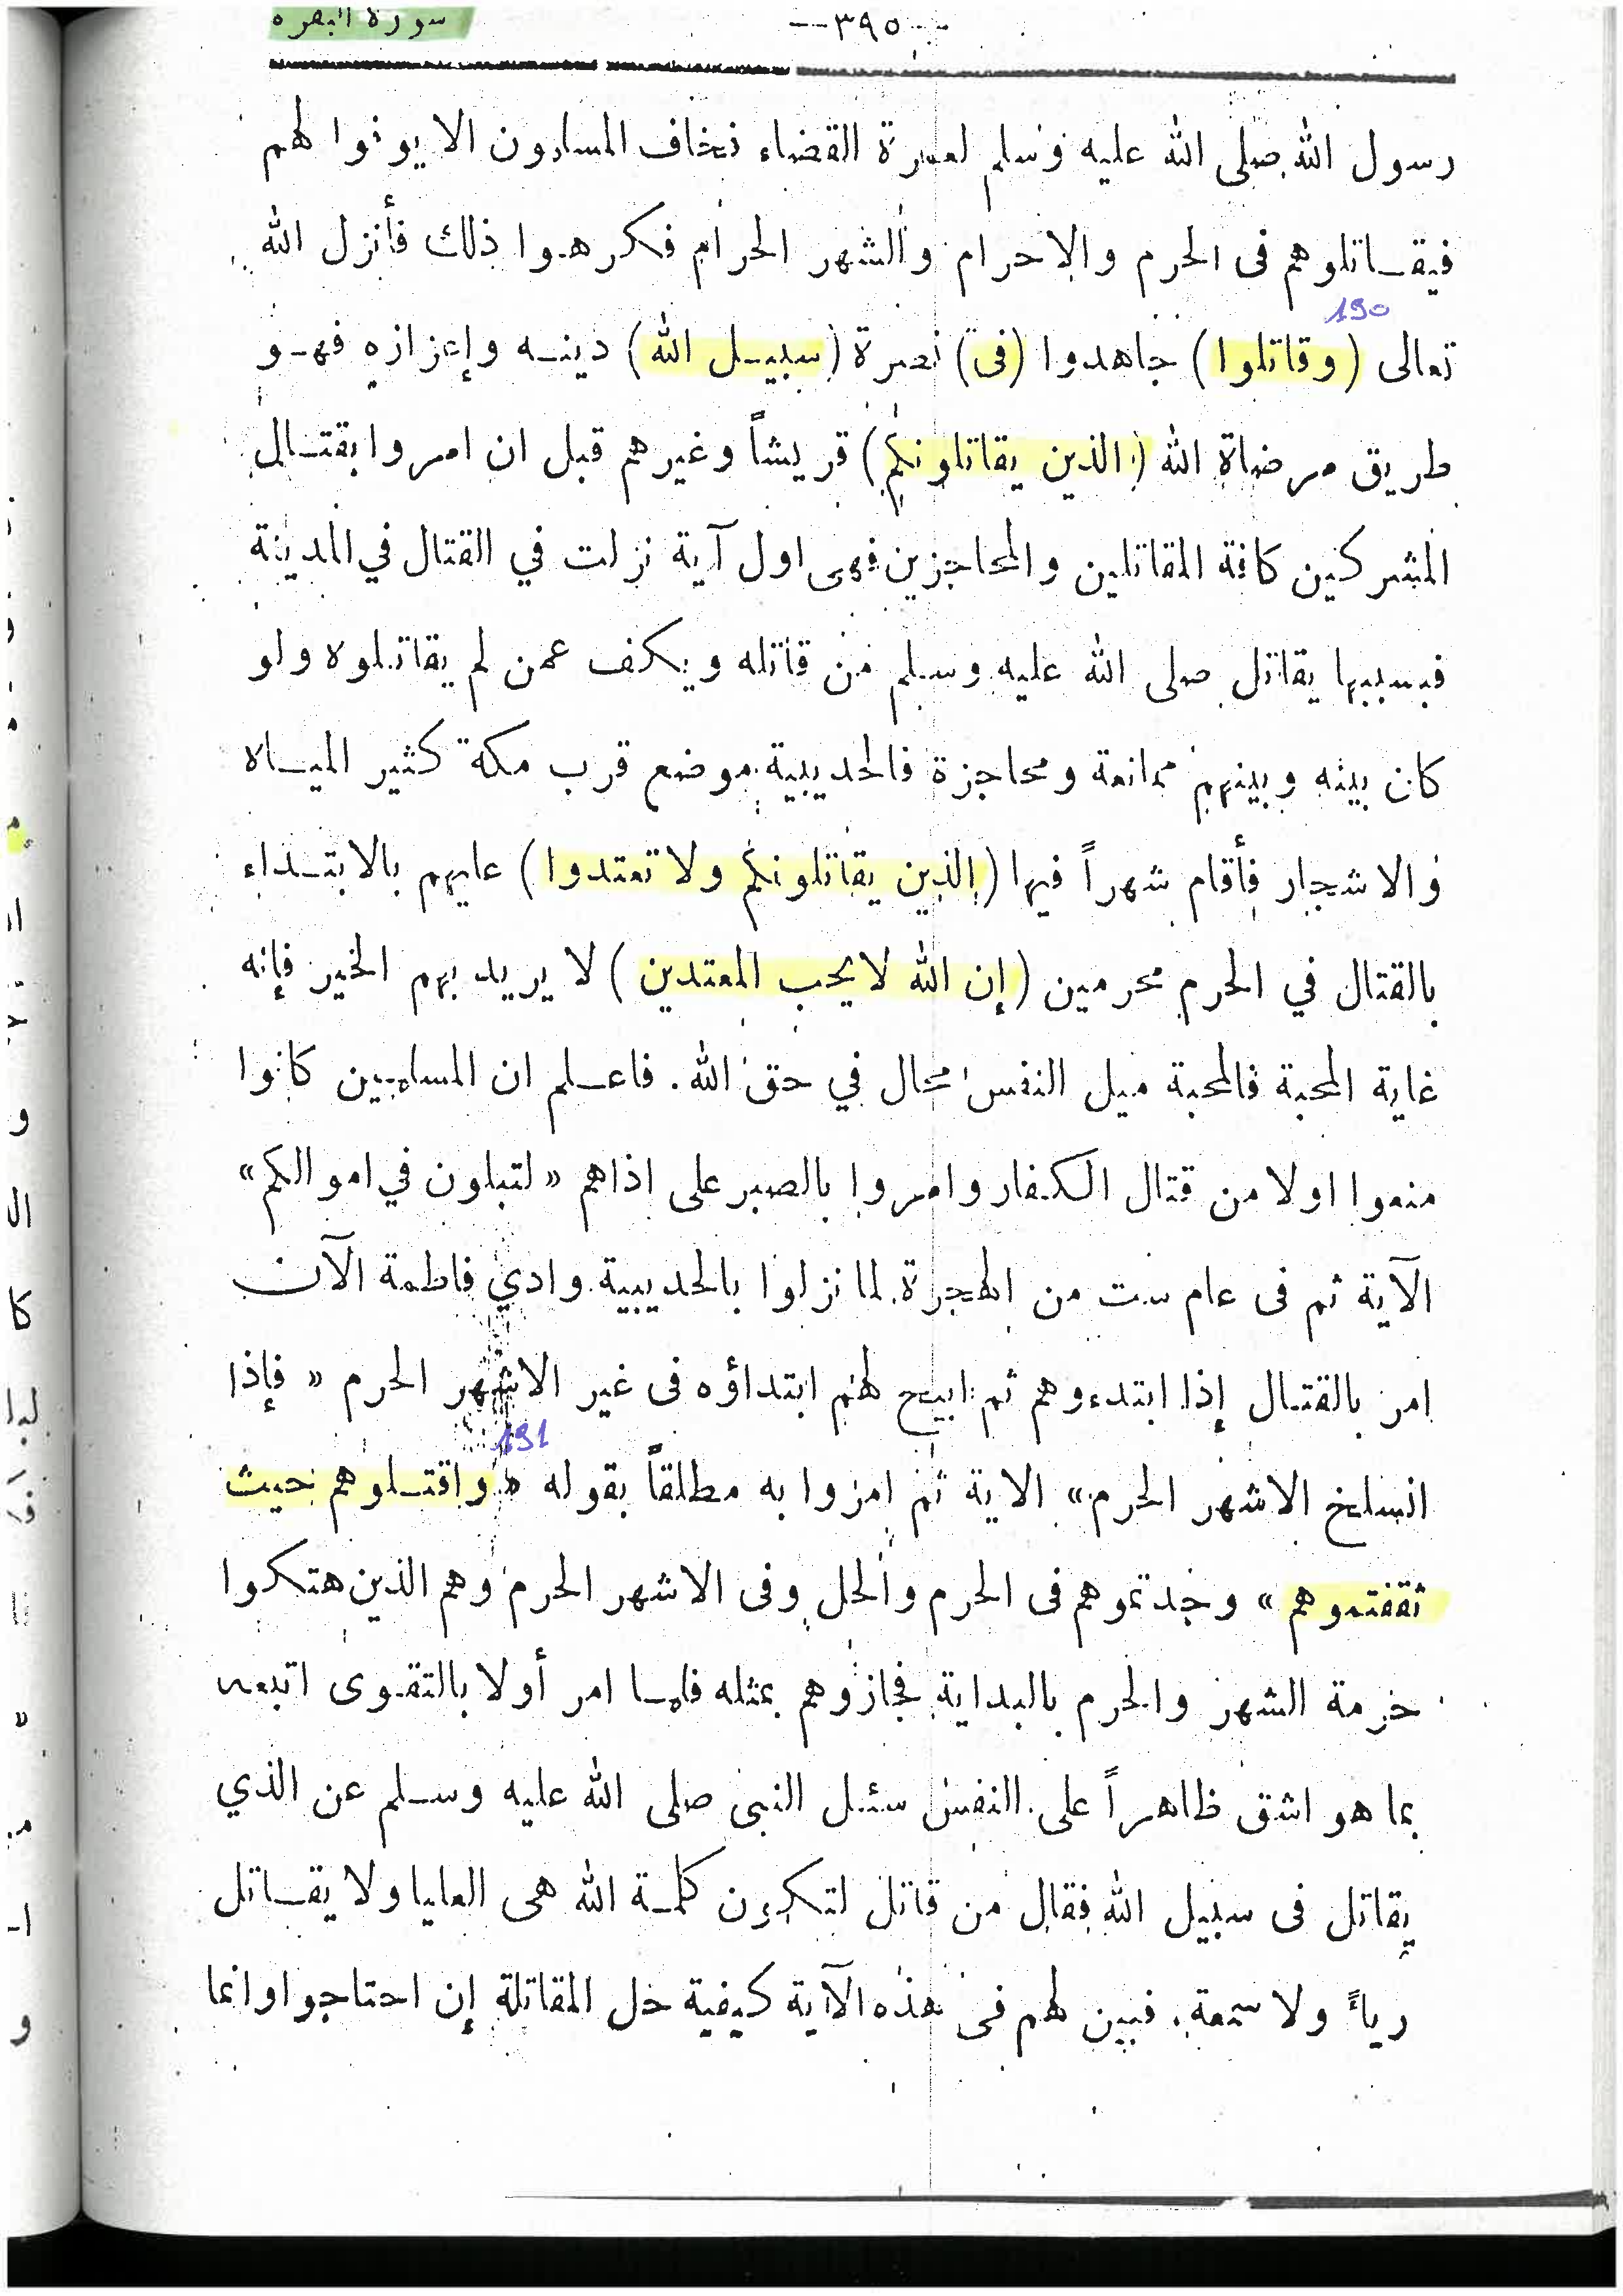 سورة البقره
--٣٩٥--
رسول الله صلى الله عليه وسلم لعمرة القضاء فخاف المسلمون الا يوفوا لهم
فيقـاتلوهم فى الحرم والاحرام والشهر الحرام فكرهوا ذلك فأنزل الله
190
تعالى (وقاتلوا) جاهدوا (فى) نصرة (سبيـل الله) دينـه وإعزازه فهـو
طريق مرضاة الله (الذين يقاتلونكم) قريشاً وغيرهم قبل ان امروا بقتـال
المشركين كافة المقاتلين والمحاجزين فهى اول آية نزلت في القتال في المدينة
فبسببها يقاتل صلى الله عليه وسلم من قاتله ويكف عمن لم يقاتلوه ولو
كان بينه وبينهم ممانعة ومحاجزة فالحديبية موضع قرب مكة كثير الميـاه
والاشجار فأقام شهراً فيها (الذين يقاتلونكم ولا تعتدوا) عليهم بالابتـداء
بالقتال في الحرم محرمين (إن الله لا يحب المعتدين) لا يريد بهم الخير فإنه
غاية المحبة فالمحبة ميل النفس محال في حق الله. فاعـلم ان المسلمين كانوا
منعوا اولا من قتال الكفار وامروا بالصبر على اذاهم «لتبلون في اموالكم»
الآية ثم فى عام ست من الهجرة لما نزلوا بالحديبية وادي فاطمة الآن
امر بالقتـال إذا ابتدءوهم ثم ابيح لهم ابتداؤه فى غير الاشهر الحرم « فإذا
191
انسلخ الاشهر الحرم» الاية ثم امروا به مطلقاً بقوله « واقتـلوهم حيث
ثقفتموهم » وجدتموهم فى الحرم والحل وفى الاشهر الحرم وهم الذين هتكوا
حرمة الشهر والحرم بالبداية فجازوهم بمثله فلمـا امر أولا بالتقوى اتبعه
بما هو اشق ظاهراً على النفس سئل النبى صلى الله عليه وسـلم عن الذي
يقاتل فى سبيل الله فقال من قاتل لتكون كلمـة الله هى العليا ولا يقـاتل
رياءً ولا سمعة. فبين لهم فى هذه الآية كيفية حل المقاتلة إن احتاجوا وانما